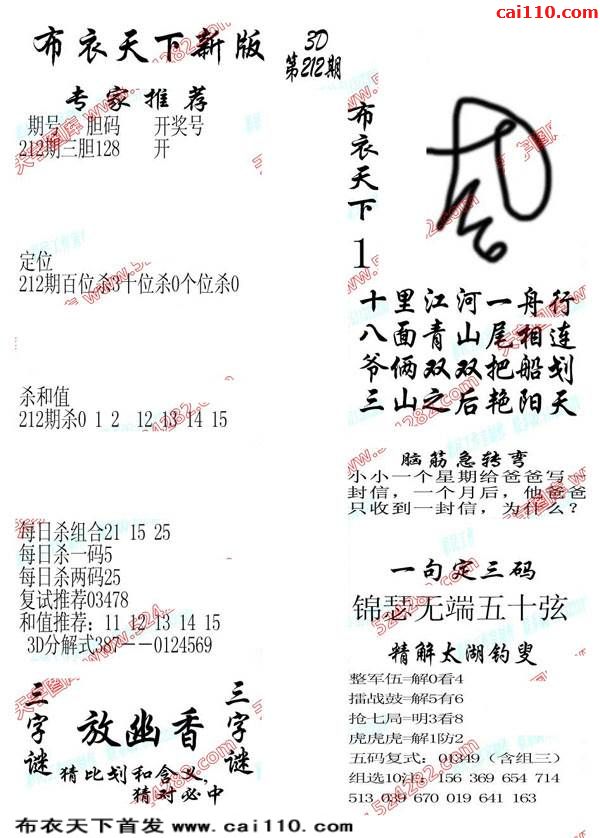 cai110.com
布衣天下新版
3D
第212期
专家推荐
期号 胆码 开奖号
212期三胆128 开
定位
212期百位杀3十位杀0个位杀0
杀和值
212期杀0 1 2 12 13 14 15
每日杀组合21 15 25
每日杀一码5
每日杀两码25
复试推荐03478
和值推荐：11 12 13 14 15
3D分解式387--0124569
三字谜
放幽香
三字谜
猜比划和含义,
猜对必中
布衣天下
1
十里江河一舟行
八面青山尾相连
爷俩双双把船划
三山之后艳阳天
脑筋急转弯
小小一个星期给爸爸写一
封信，一个月后，他爸爸
只收到一封信，为什么？
一句定三码
锦瑟无端五十弦
精解太湖钓叟
整军伍=解0看4
擂战鼓=解5有6
抢七局=明3看8
虎虎虎=解1防2
五码复式：01349（含组三）
组选10注：156 369 654 714
513 039 670 019 641 163
布衣天下首发 www.cai110.com